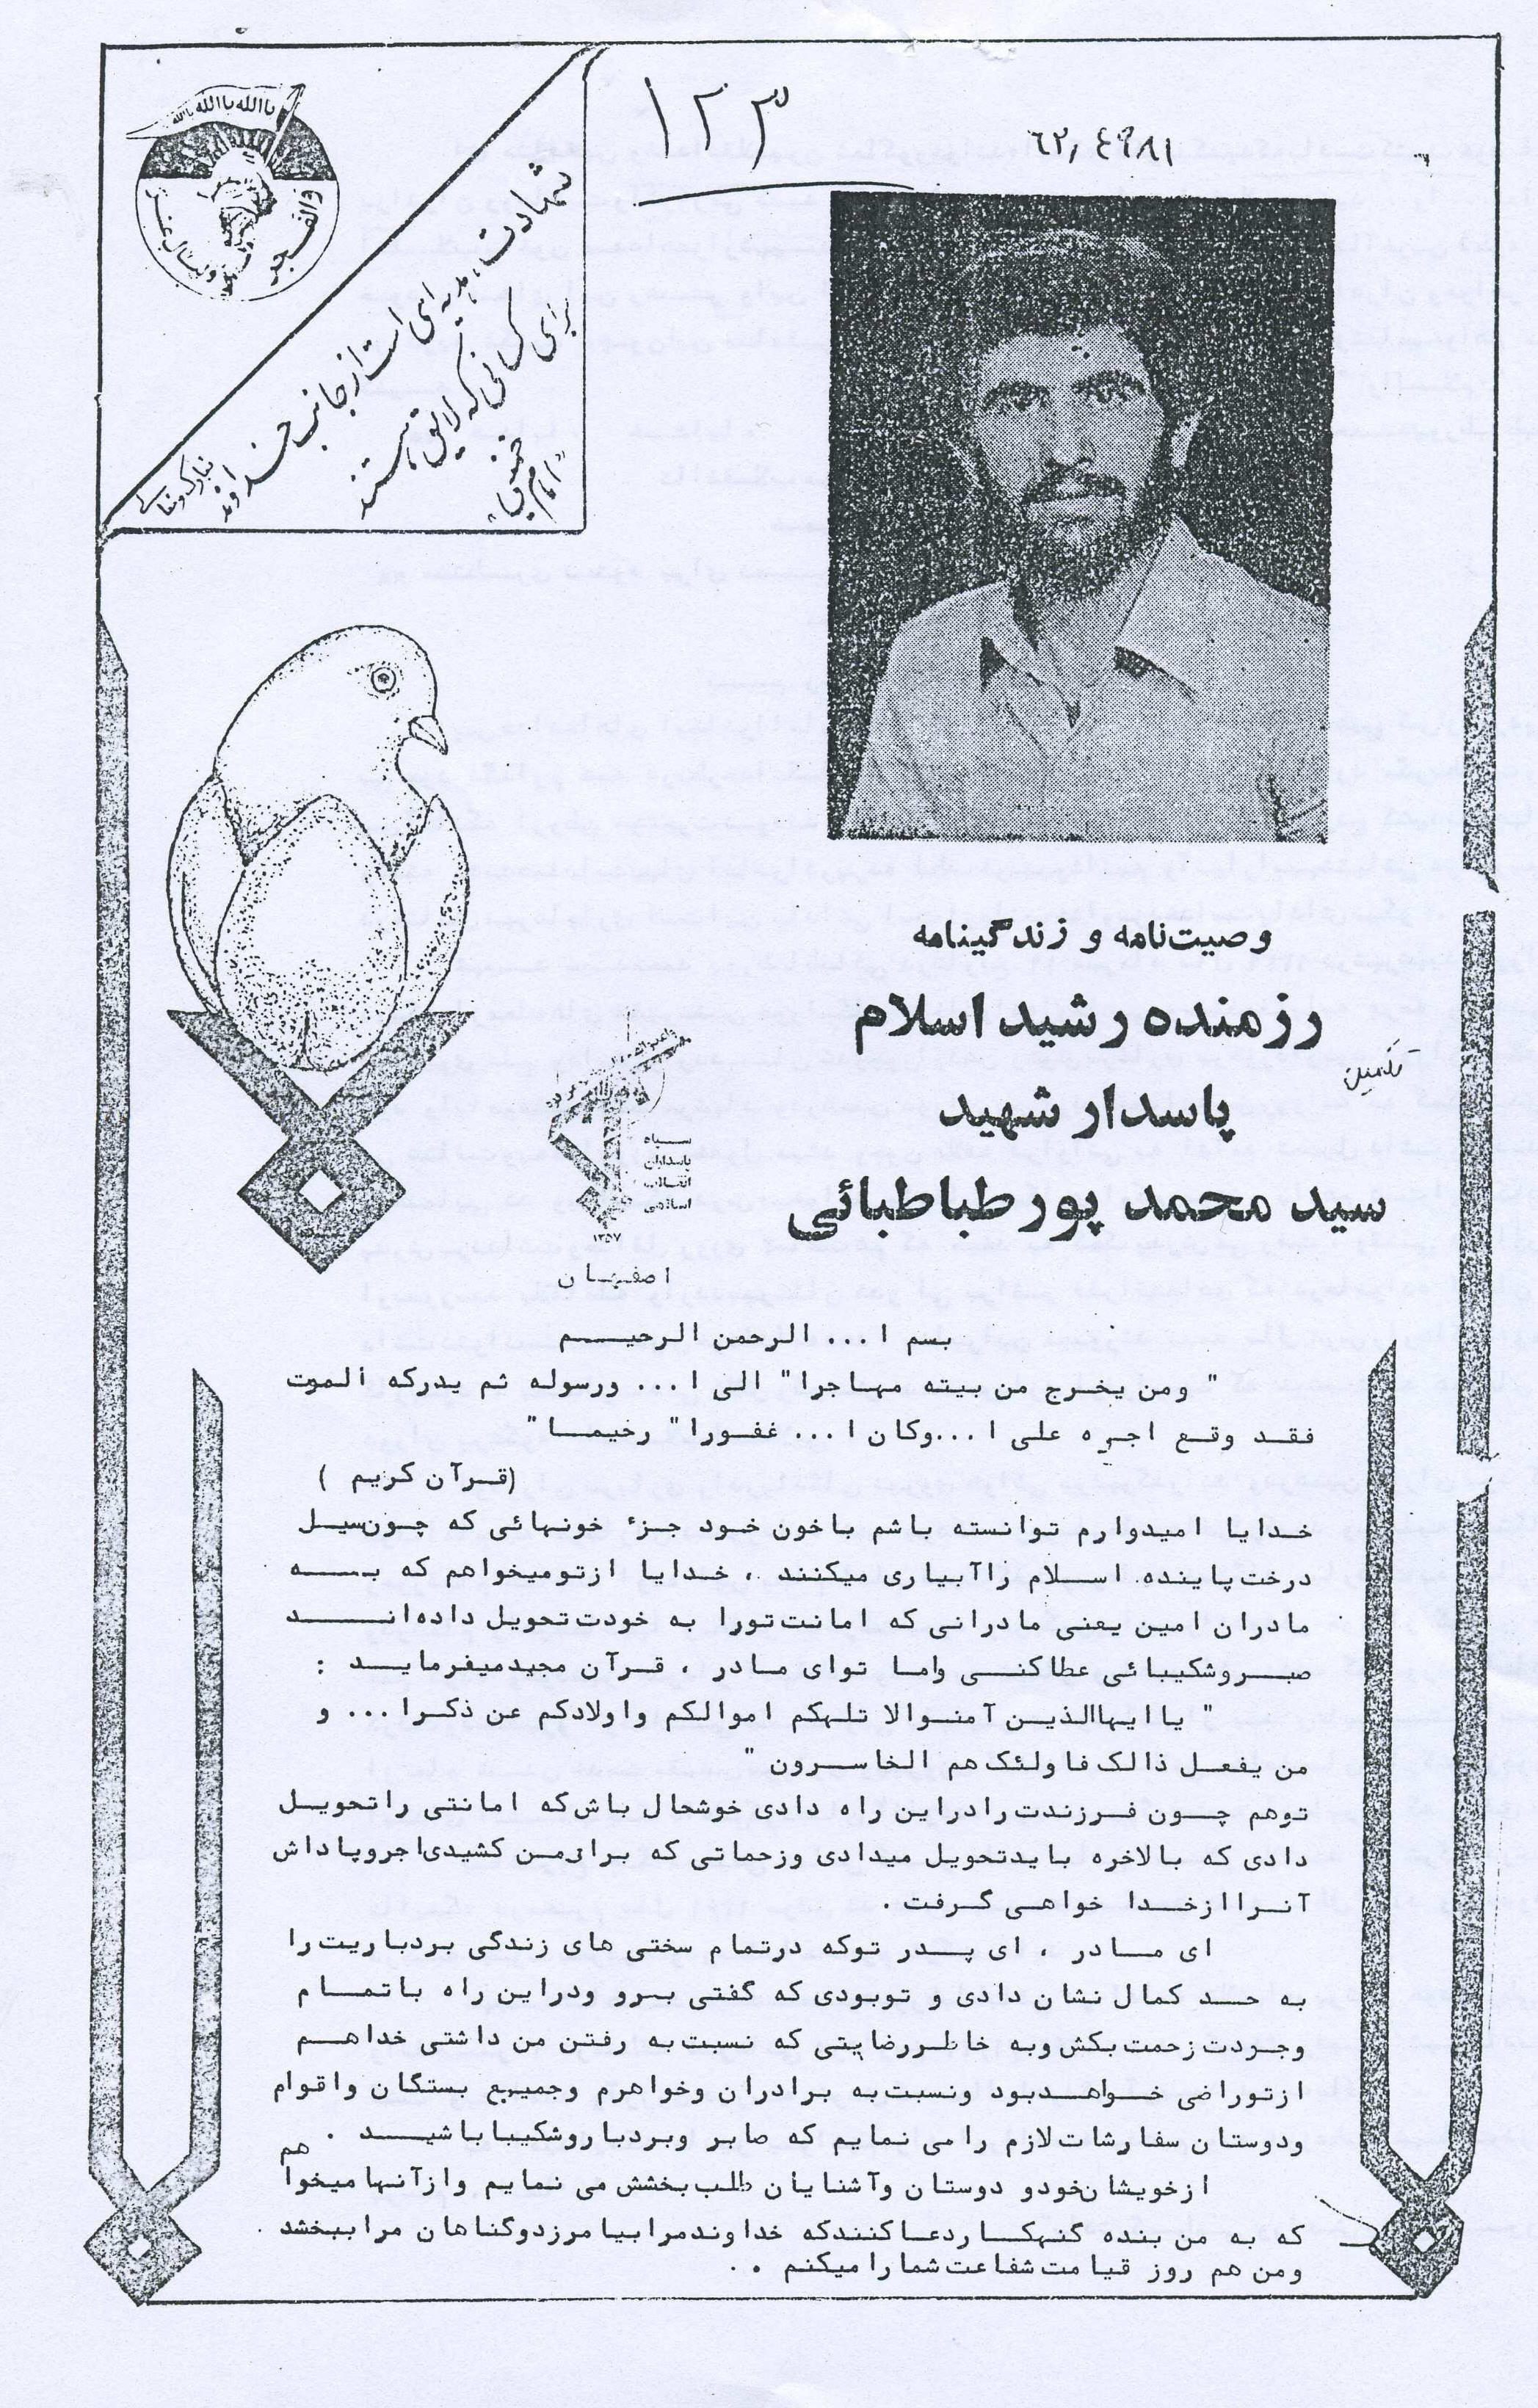 ۱۲۳
یاالله یاالله یاالله
والفجر
ولیال عشر
شهادت، هدیه‌ای است از جانب خداوند تبارک و تعالی
برای کسانی که لایق، هستند
"امام خمینی"
وصیت‌نامه و زندگینامه
رزمنده رشید اسلام
پاسدار شهید
سید محمد پورطباطبائی
سپاه
پاسداران
انقلاب
اسلامی
۱۳۵۷
اصفهان
بسم ا... الرحمن الرحیم
" ومن یخرج من بیته مهاجرا" الی ا... ورسوله ثم یدرکه الموت
فقد وقع اجره علی ا...وکان ا...غفورا" رخیما"
(قرآن کریم )
خدایا امیدوارم توانسته باشم باخون خود جزء خونهائی که چون‌سیل
درخت‌پاینده اسلام راآبیاری میکنند ، خدایا ازتومیخواهم که به
مادران امین یعنی مادرانی که امانت‌تورا به خودت‌تحویل داده‌اند
صبروشکیبائی عطاکنی واما توای مادر ، قرآن مجیدمیفرماید :
" یاایهاالذین آمنوالا تلهکم اموالکم واولادکم عن ذکرا... و
من یفعل ذالک‌فاولئک‌هم الخاسرون "
توهم چون فرزندت‌رادراین راه دادی خوشحال باش‌که امانتی راتحویل
دادی که بالاخره بایدتحویل میدادی وزحماتی که برای‌من کشیدی‌اجروپاداش
آنراازخدا خواهی گرفت .
ای مادر ، ای پدر توکه درتمام سختی های زندگی بردباریت‌را
به حد کمال نشان دادی و توبودی که گفتی برو ودراین راه باتمام
وجردت‌زحمت‌بکش وبه خاطررضایتی که نسبت‌به رفتن من داشتی خداهم
ازتوراضی خواهدبود ونسبت‌به برادران وخواهرم وجمیع بستگان واقوام
ودوستان سفارشات‌لازم رامی نمایم که صابر وبردباروشکیباباشید .
ازخویشان‌خودو دوستان وآشنایان طلب‌بخشش می نمایم وازآنهامیخواهم
که به من بنده گنهکاردعاکنندکه خداوندمرابیامرزدوگناهان مراببخشد .
ومن هم روز قیامت‌شفاعت‌شمارامیکنم . .